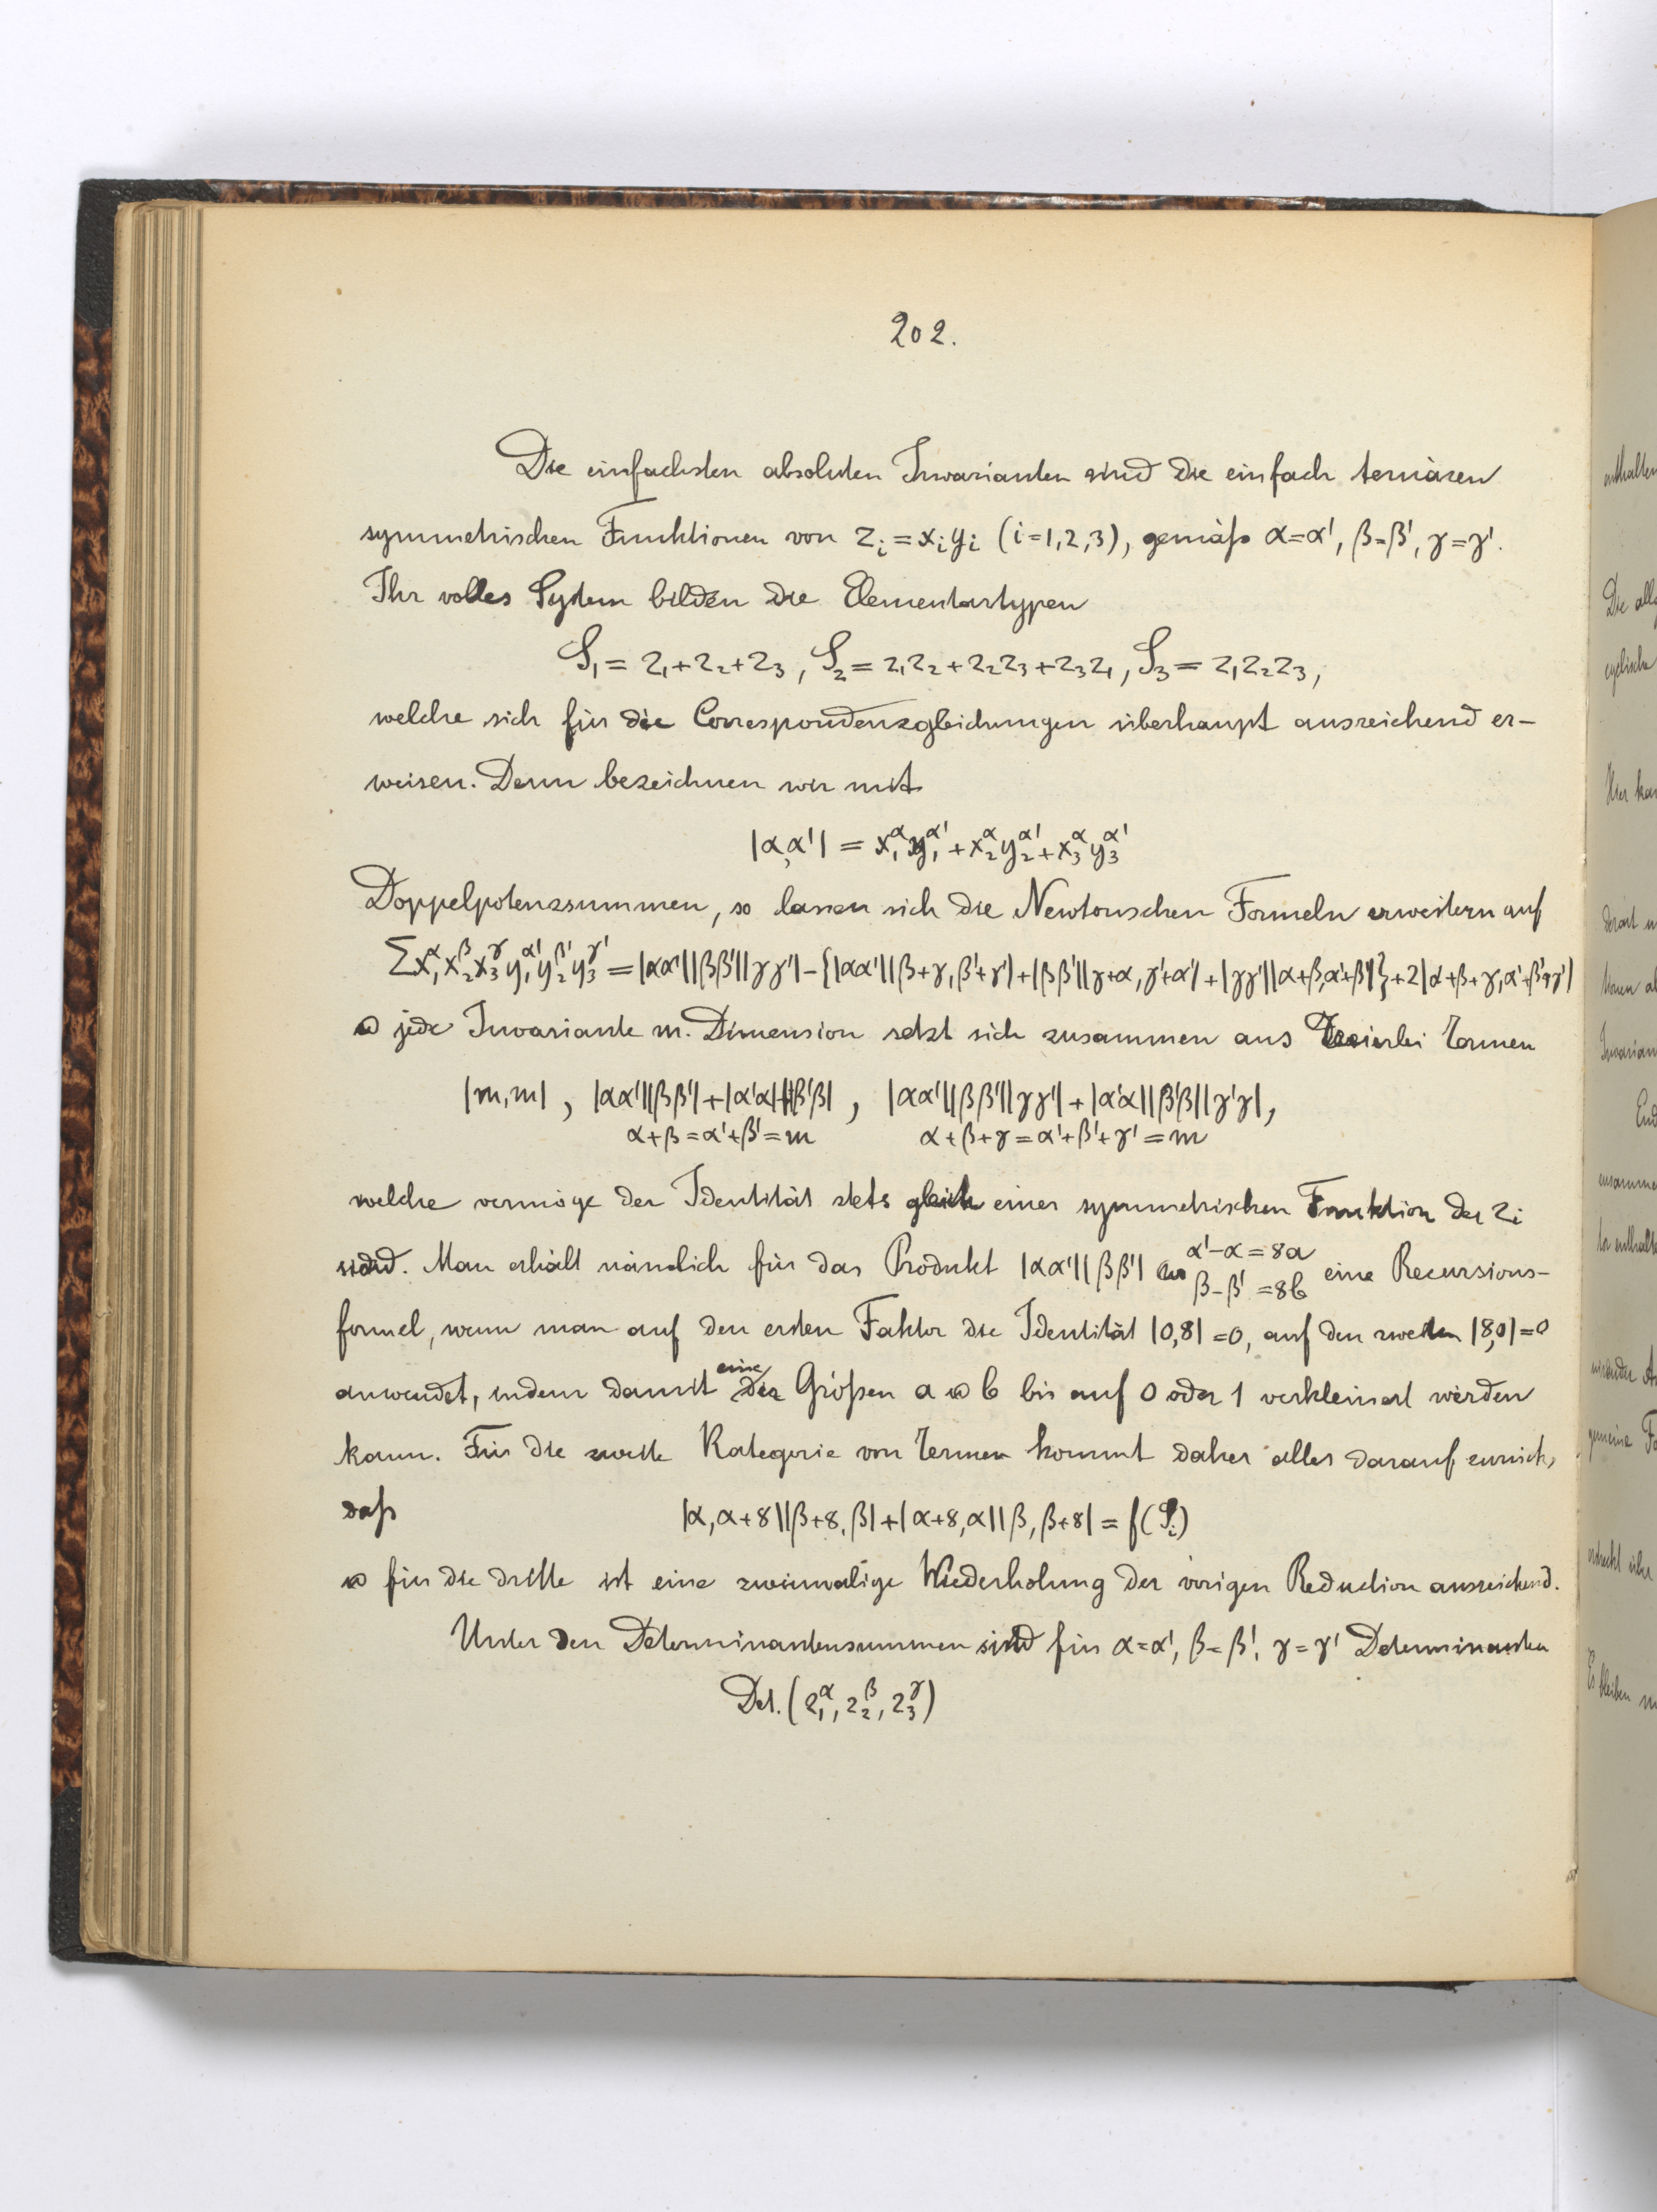 202.
Die einfachsten absoluten Invarianten sind die einfach ternären
symmetrischen Funktionen von z_i = x_i y_i (i=1,2,3), gemäß α=α', β=β', γ=γ'.
Ihr volles System bilden die Elementartypen
S_1 = z_1+z_2+z_3, S_2 = z_1z_2+z_2z_3+z_3z_1, S_3 = z_1z_2z_3,
welche sich für die Correspondenzgleichungen überhaupt ausreichend er-
weisen. Denn bezeichnen wir mit
|α,α'| = x_1^α y_1^α' + x_2^α y_2^α' + x_3^α y_3^α'
Doppelpotenzsummen, so lassen sich die Newtonschen Formeln erweitern auf
Σx_1^α x_2^β x_3^γ y_1^α' y_2^β' y_3^γ' = |αα'||ββ'||γγ'| − {|αα'||β+γ, β'+γ'| + |ββ'||γ+α, γ'+α'| + |γγ'||α+β, α'+β'|} + 2|α+β+γ, α'+β'+γ'|
u jede Invariante m. Dimension setzt sich zusammen aus dreierlei Termen
|m,m| , |αα'||ββ'|+|α'α||β'β| , |αα'||ββ'||γγ'|+|α'α||β'β||γ'γ|,
α+β=α'+β'=m α+β+γ=α'+β'+γ'=m
welche vermöge der Identität stets gleich einer symmetrischen Funktion der z_i
sind. Man erhält nämlich für das Produkt |αα'||ββ'| wo α'−α=8a β−β'=8b eine Recursions-
formel, wenn man auf den ersten Faktor die Identität |0,8|=0, auf den zweiten |8,0|=0
anwendet, indem damit eine der Größen a u b bis auf 0 oder 1 verkleinert werden
kann. Für die zweite Kategorie von Termen kommt daher alles darauf zurück,
daß |α,α+8||β+8,β|+|α+8,α||β,β+8| = f(S_i)
u für die dritte ist eine zweimalige Wiederholung der vorigen Reduction ausreichend.
Unter den Determinantensummen sind für α=α', β=β', γ=γ' Determinanten
Det.(z_1^α, z_2^β, z_3^γ)